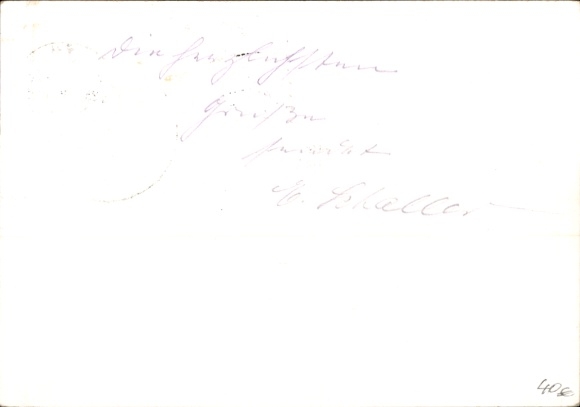 Die herzlichsten
Grüße
sendet
E. Schaller
40